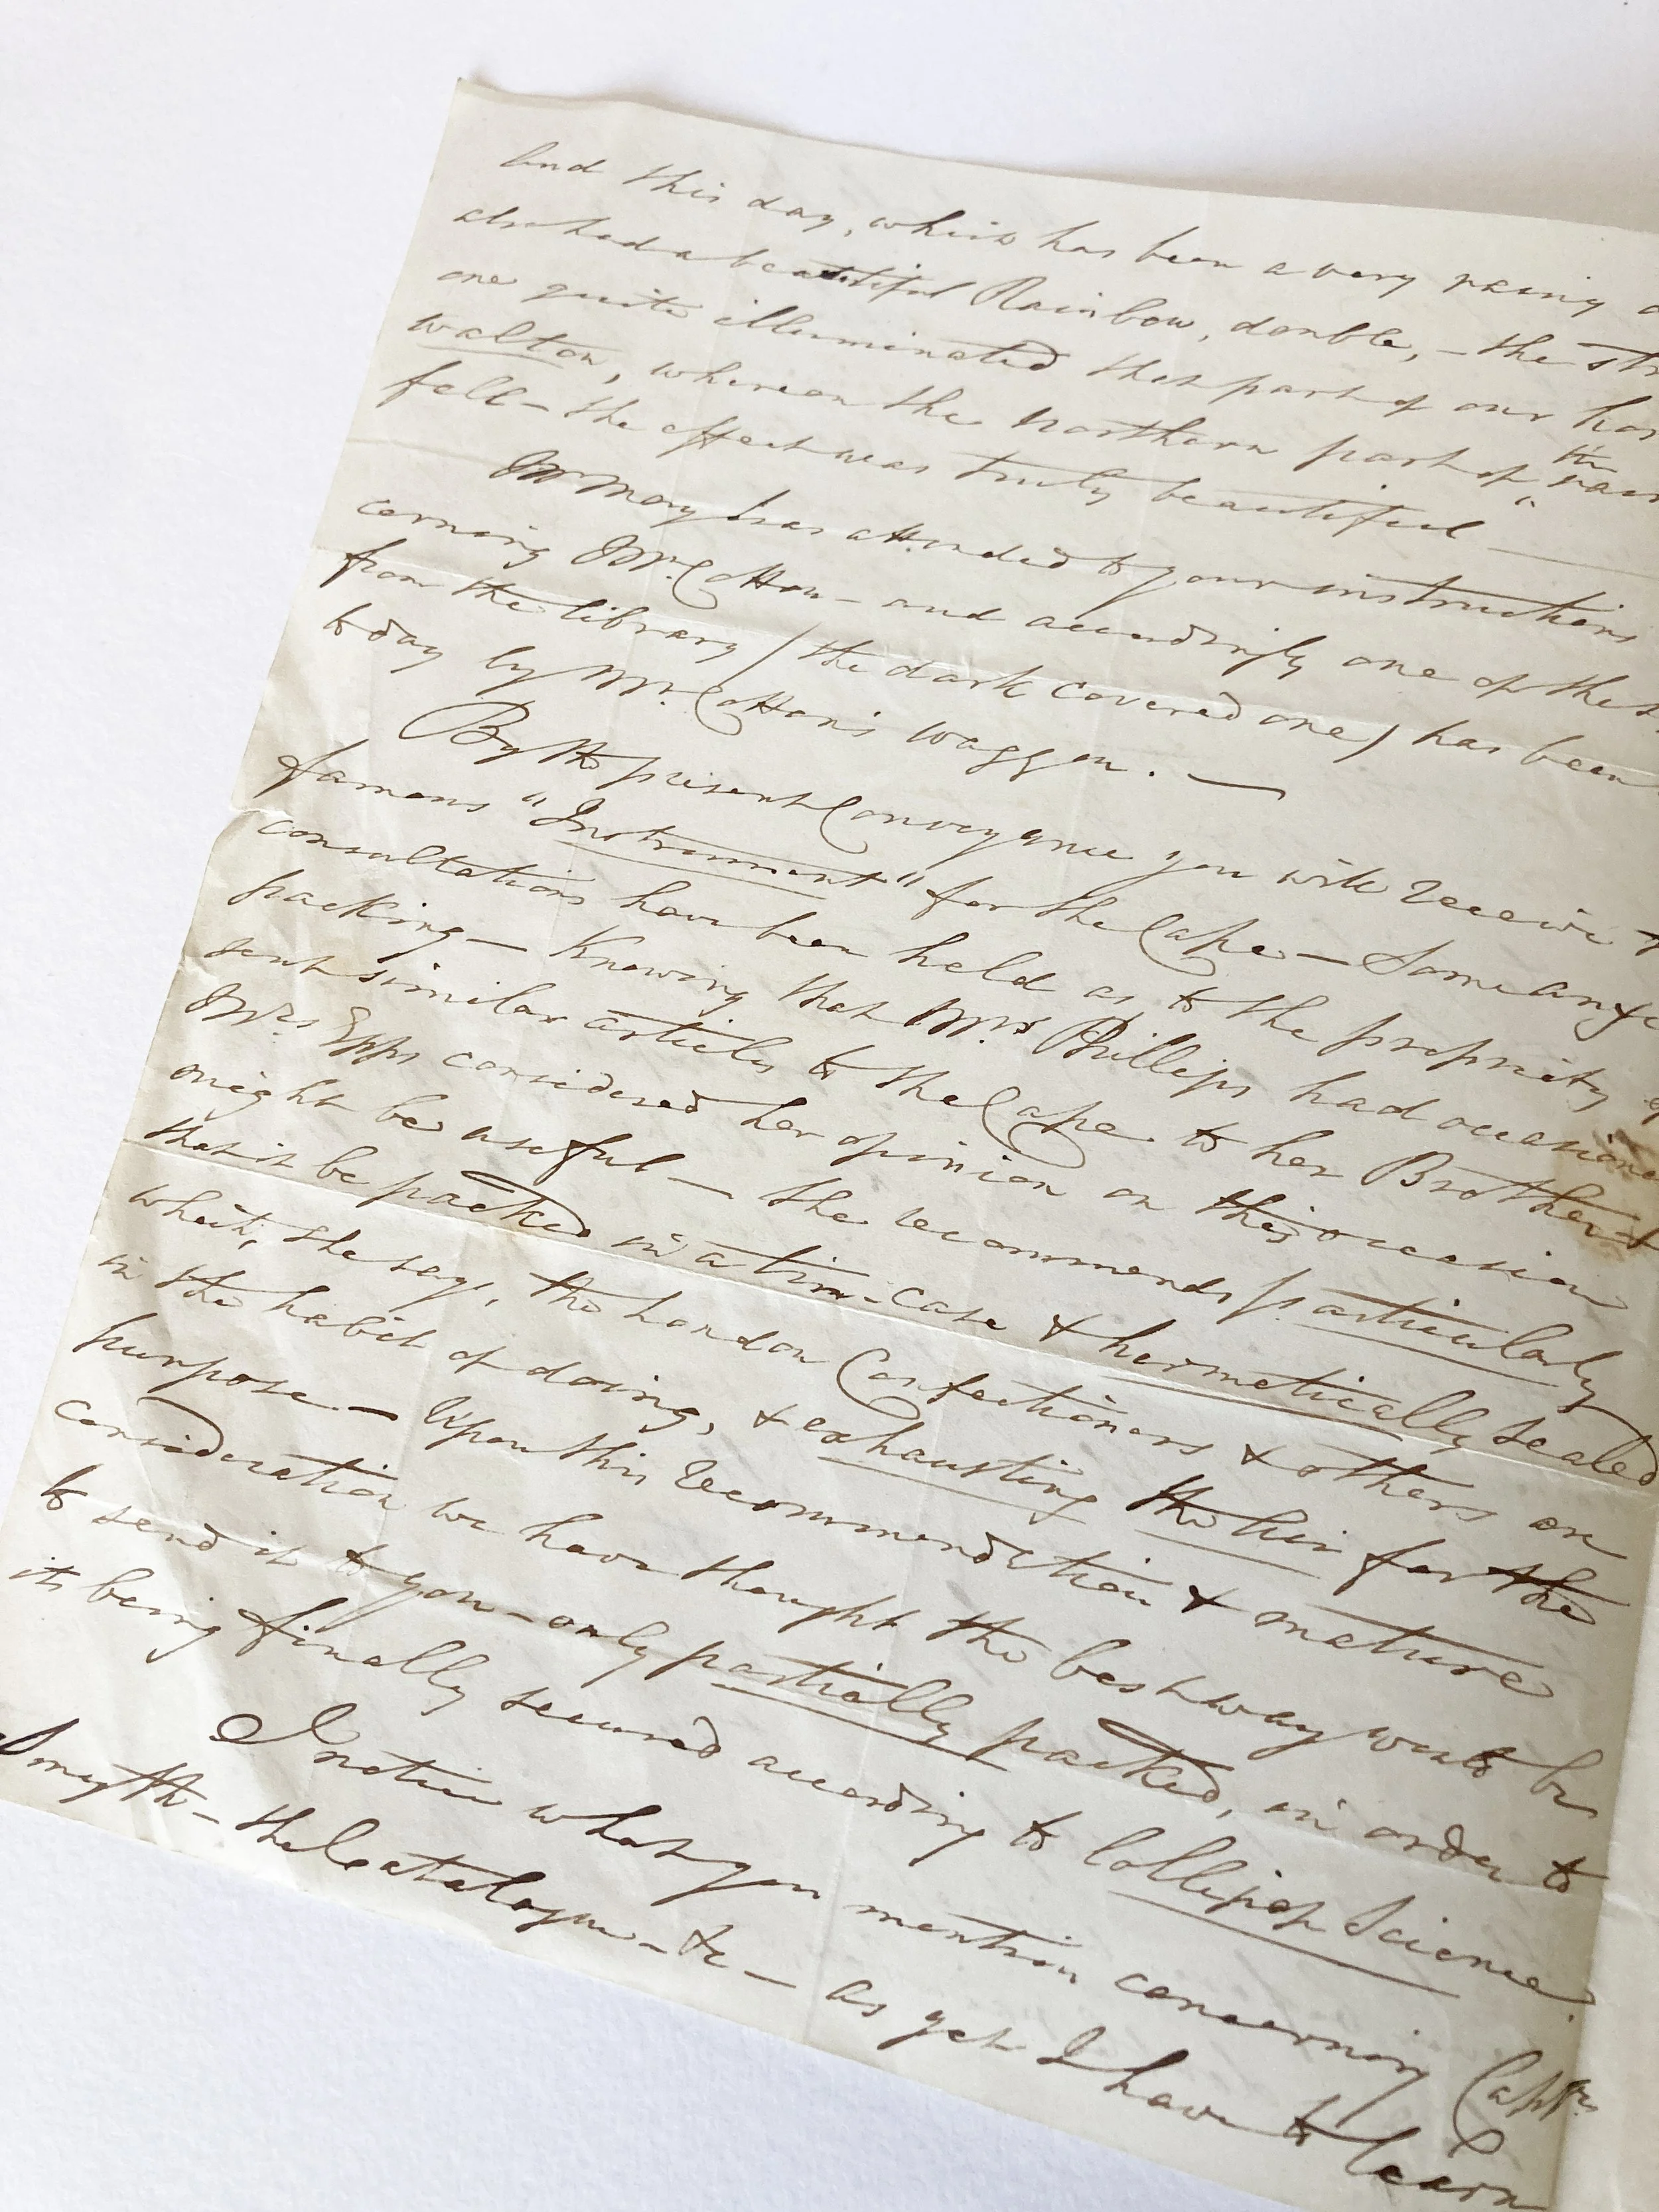 And this day, which has been a very rainy
also had a beautiful Rainbow, double, – the
one quite illuminated that part of our
Walton, whereon the northern part of the
fell – the effect was truly beautiful —
Mr May has attended to your instructions
cerning Mr. Cotton – and accordingly one of the
from the library (the dark covered one) has been
today by Mr. Cotton's waggon. —
By the present Conveyance you will receive
famous "Instrument" for the Cape – Some
consultations have been held as to the propriety
packing – Knowing that Mrs Phillips had
sent similar articles to the Cape to her Brother
Mrs Epps considered her opinion on this occasion
might be useful – She recommends particularly
that it be packed in a tin-case & hermetically sealed
which, she says, the London Confectioners & others are
in the habit of doing, & exhausting the air for the
purpose – Upon this recommendation & mature
consideration we have thought the best way would be
to send it to you – only partially packed, in order to
its being finally secured according to lollipop Science.
I notice what you mention concerning Captn
Smyth – the Catalogue – &c – as yet I have to learn